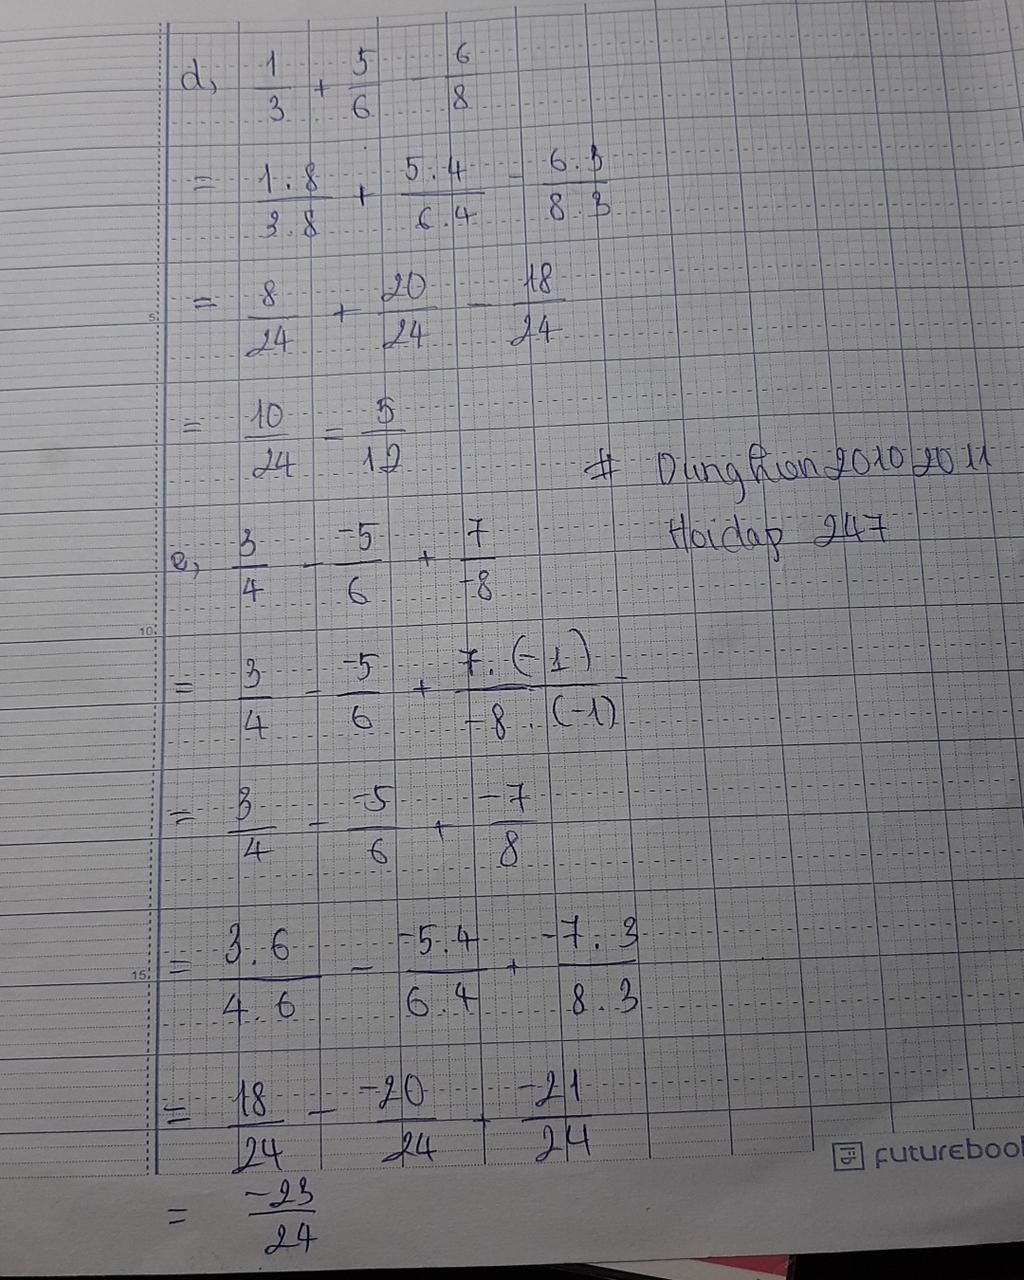 d, 1/3 + 5/6 - 6/8
= 1.8/3.8 + 5.4/6.4 - 6.3/8.3
= 8/24 + 20/24 - 18/24
5
= 10/24 = 5/12
# Dunghion20102011
Hoidap 247
e, 3/4 - -5/6 + 7/-8
10
= 3/4 - -5/6 + 7.(-1)/-8.(-1)
= 3/4 - -5/6 + -7/8
= 3.6/4.6 - -5.4/6.4 + -7.3/8.3
15
= 18/24 - -20/24 + -21/24
FUTUREBOOK
= -23/24